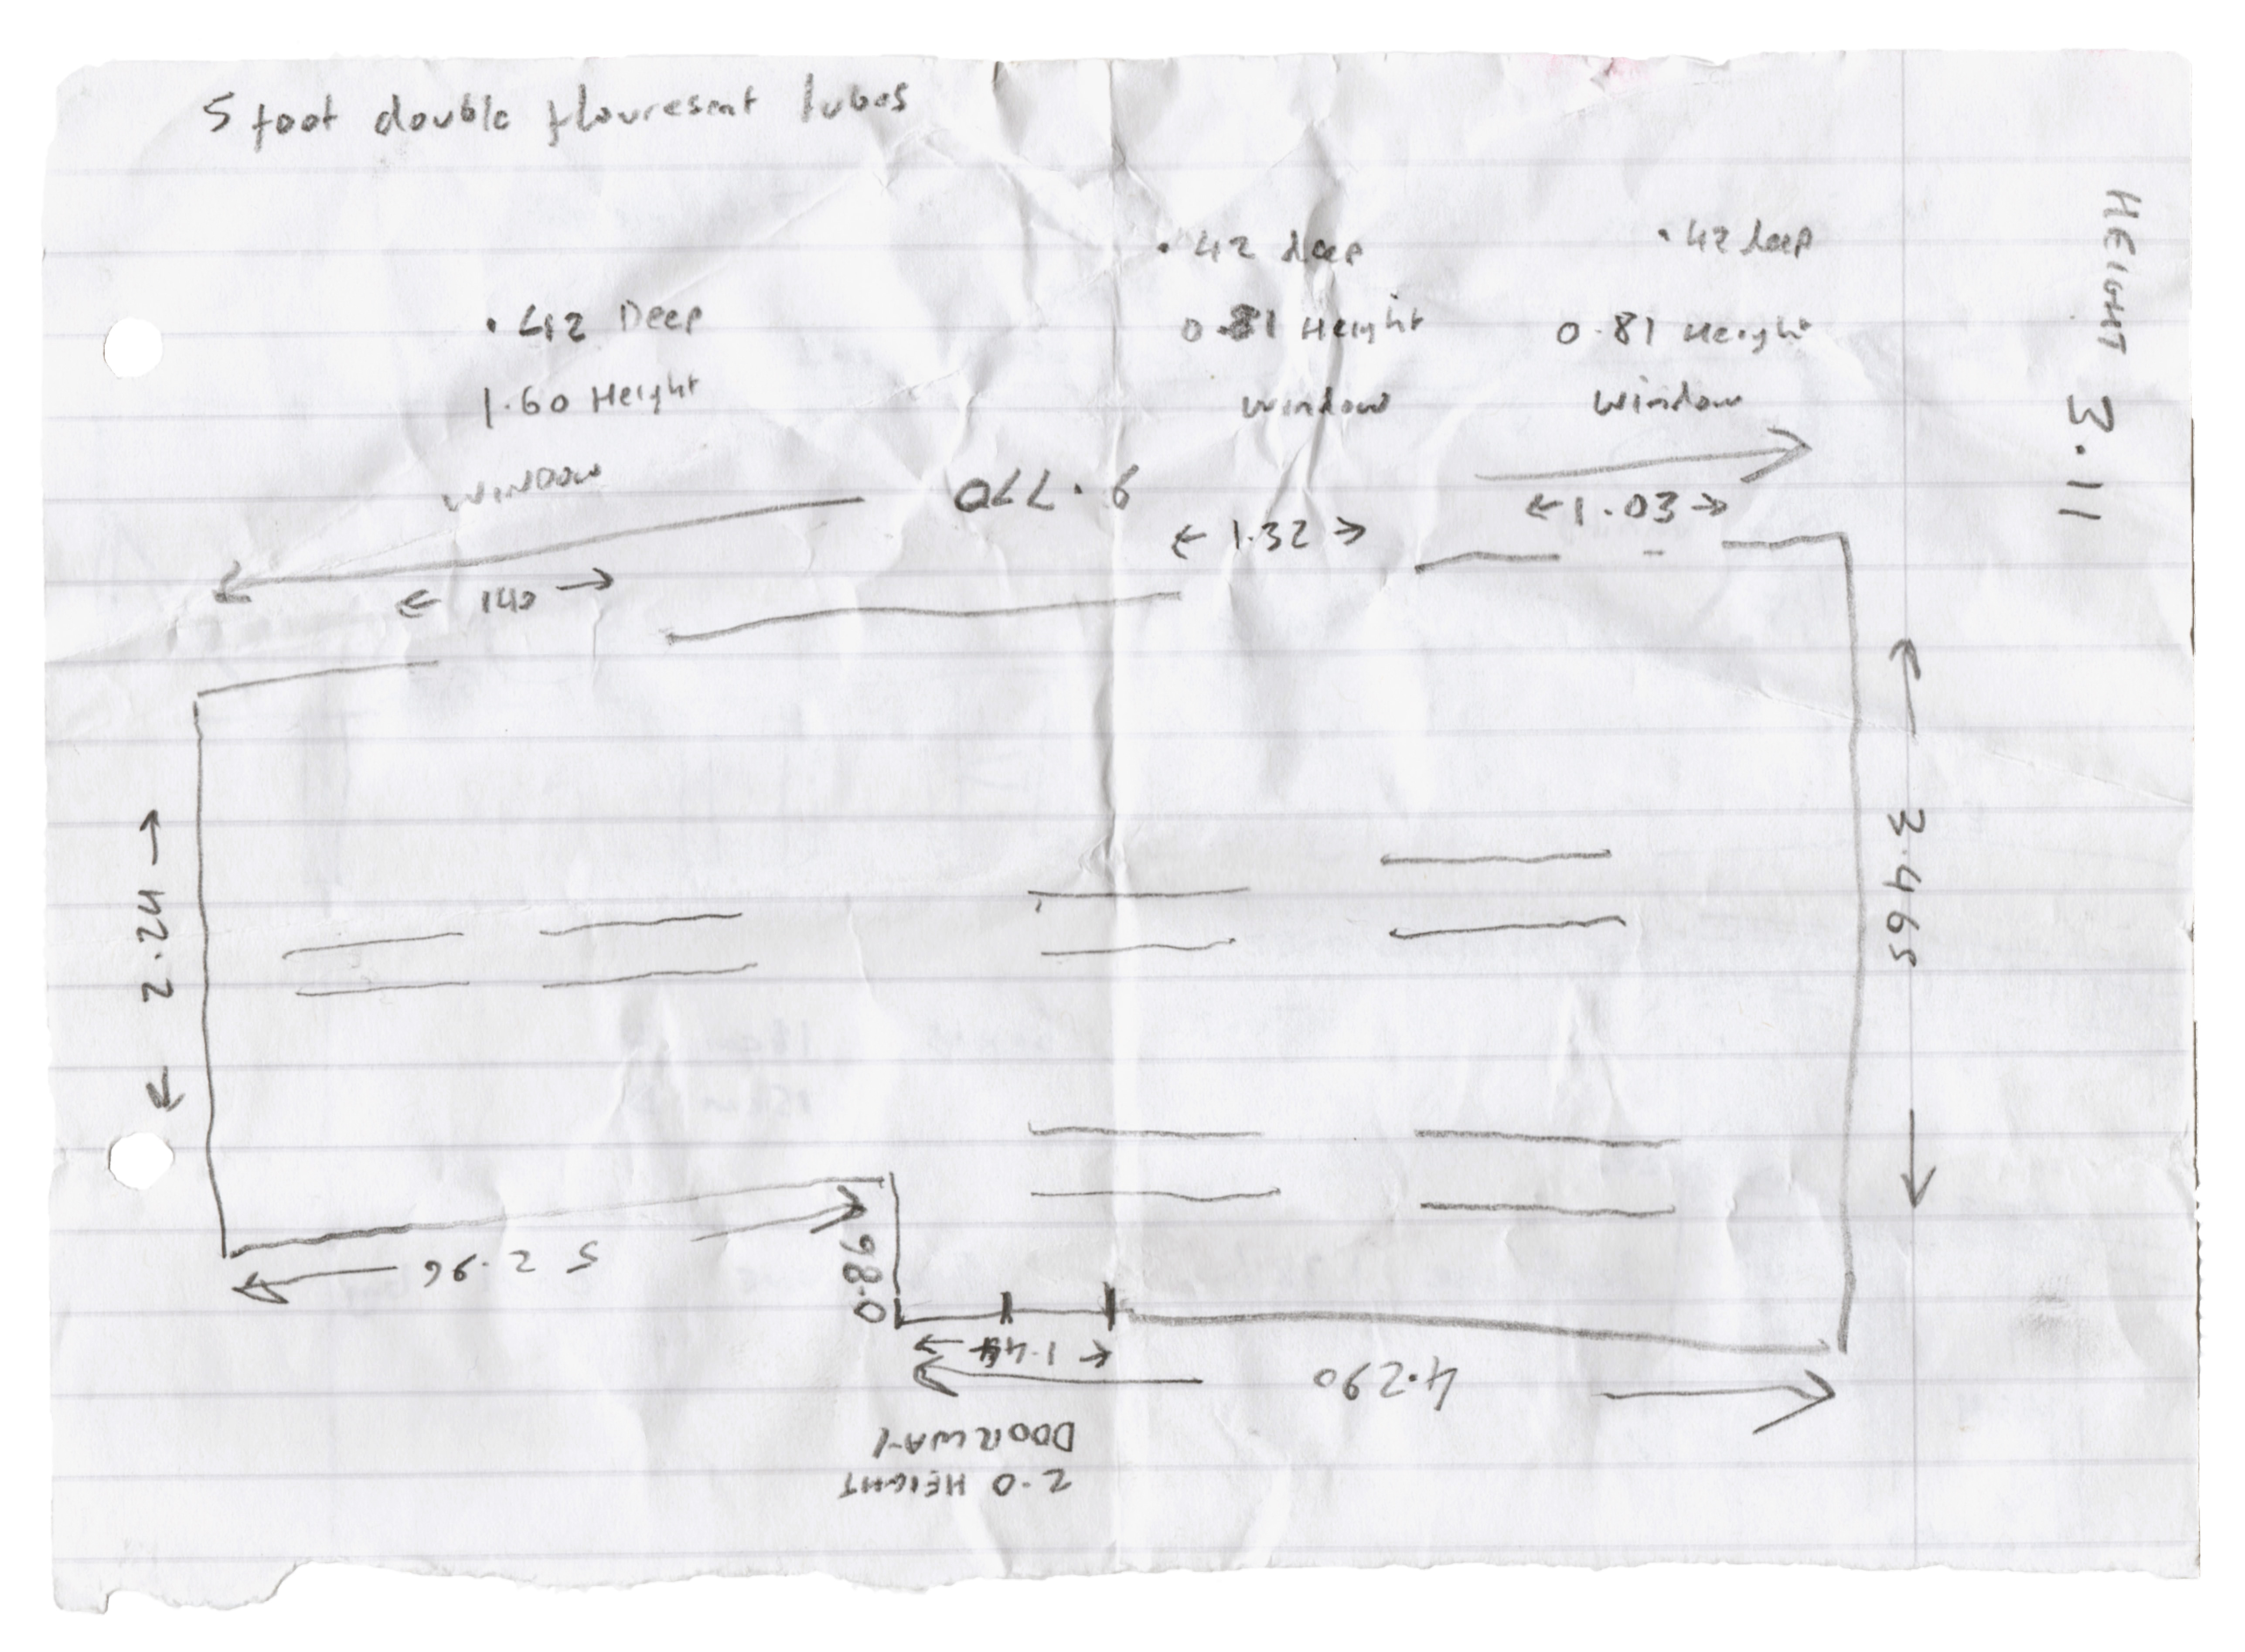 5 foot double flouresent tubes
HEIGHT 3.11
.42 deep
0.81 Height
window
.42 deep
0.81 Height
window
.42 Deep
1.60 Height
WINDOW
9.770
1.03
1.32
140
3.465
2.24
5 2.96
0.86
1.44
4.290
DOORWAY
2.0 HEIGHT